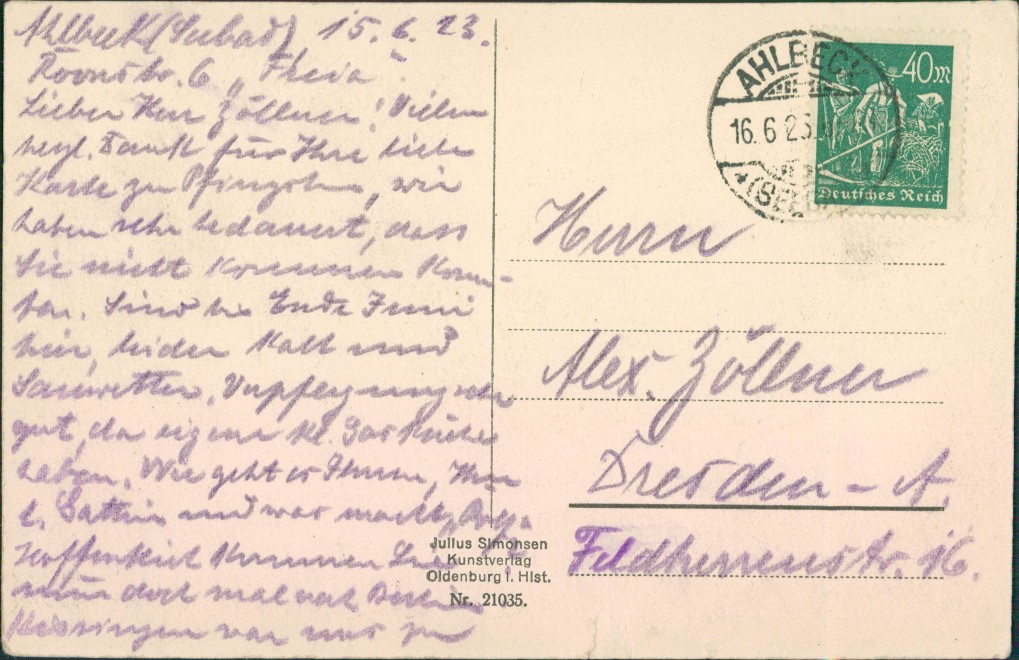 Ahlbeck (Seebad), 15.6.23.
Roonstr. 6 „Freia".
Lieber Herr Zöllner! Vielen
herzl. Dank für Ihre liebe
Karte zu Pfingsten, wir
haben sehr bedauert, dass
Sie nicht kommen konn-
ten. Sind bis Ende Juni
hier, leider kalt und
Sauwetter, Verpflegung sehr
gut, da eigene kl. Gasküche
haben. Wie geht es Ihnen, Ihrer
l. Gattin und was macht
Hoffentlich kommen Sie
nun doch mal nach Berlin
Kissingen war uns zu
AHLBECK
16.6.23
(SEE
40 M
Deutsches Reich
Herrn
Alex. Zöllner
Dresden-A.
Feldherrenstr. 16.
Julius Simonsen
Kunstverlag
Oldenburg i. Hlst.
Nr. 21035.